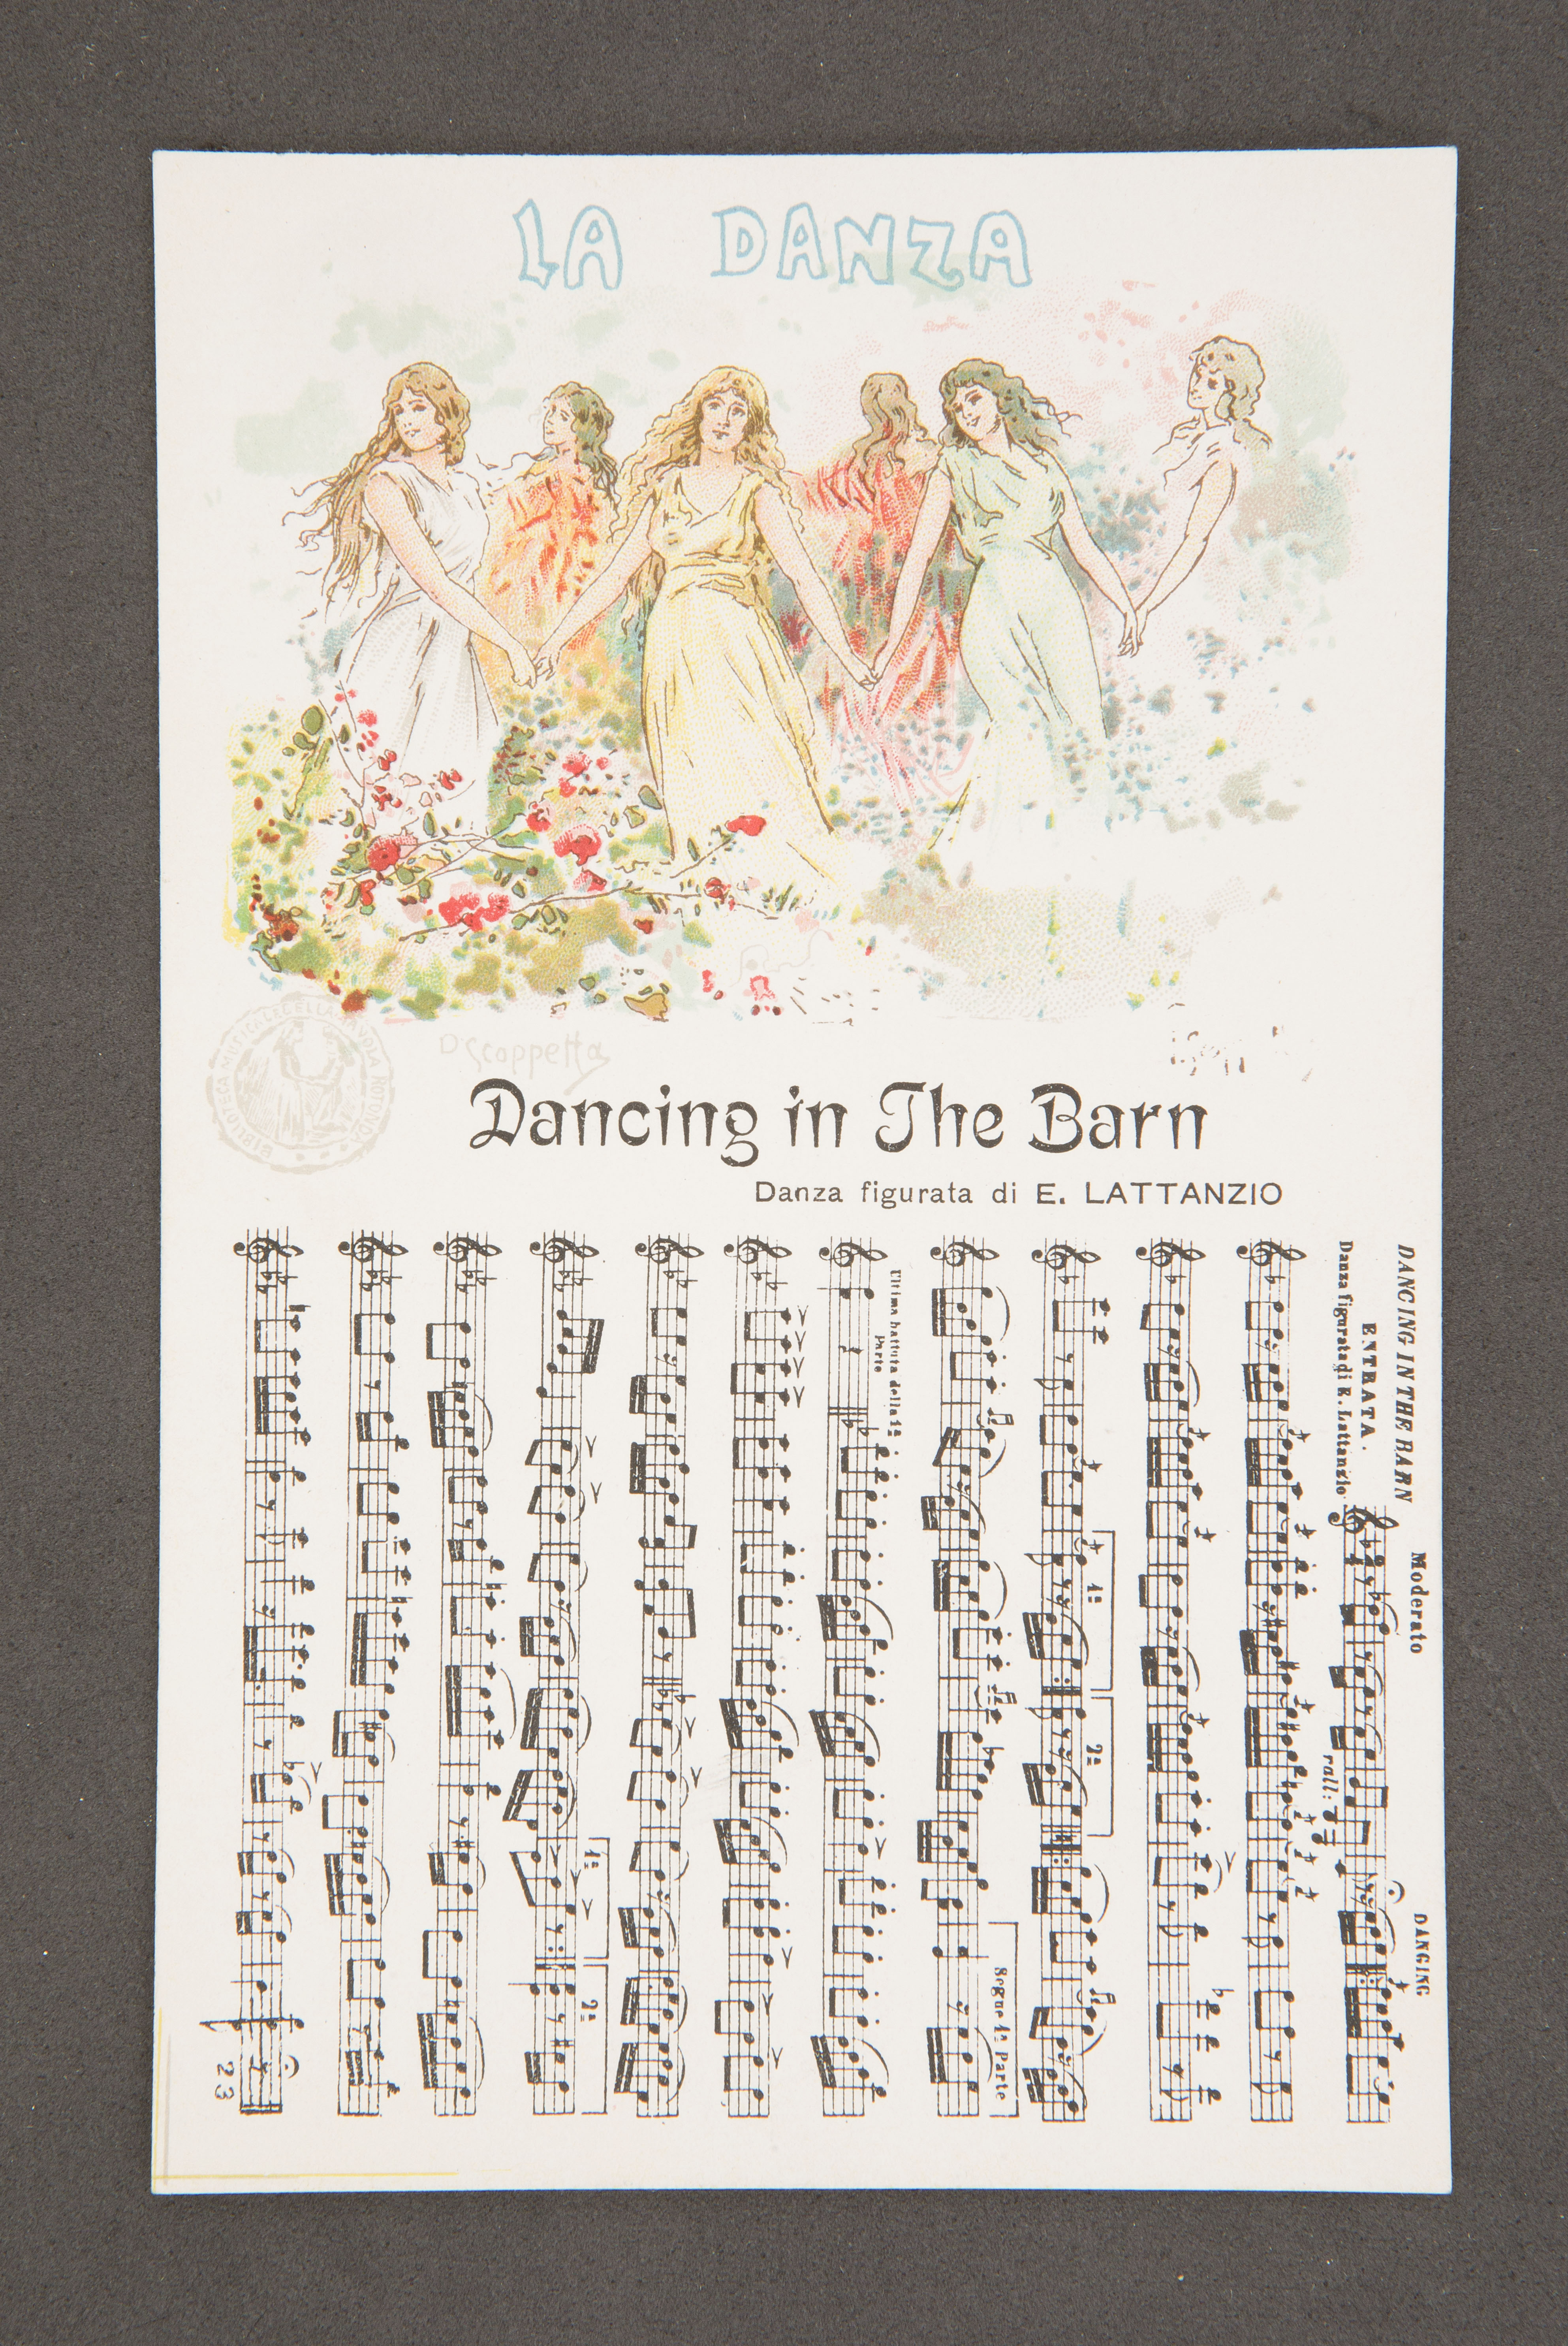 LA DANZA
BIBLIOTECA MUSICALE DELLA TAVOLA ROTONDA
P Scoppetta
Dancing in The Barn
Danza figurata di E. LATTANZIO
DANCING IN THE BARN
ENTRATA.
Danza figurata di E. Lattanzio
Moderato
DANCING
rall:
1ª
2ª
Segue 1ª Parte
Ultima battuta della 1ª
Parte
1ª
2ª
23